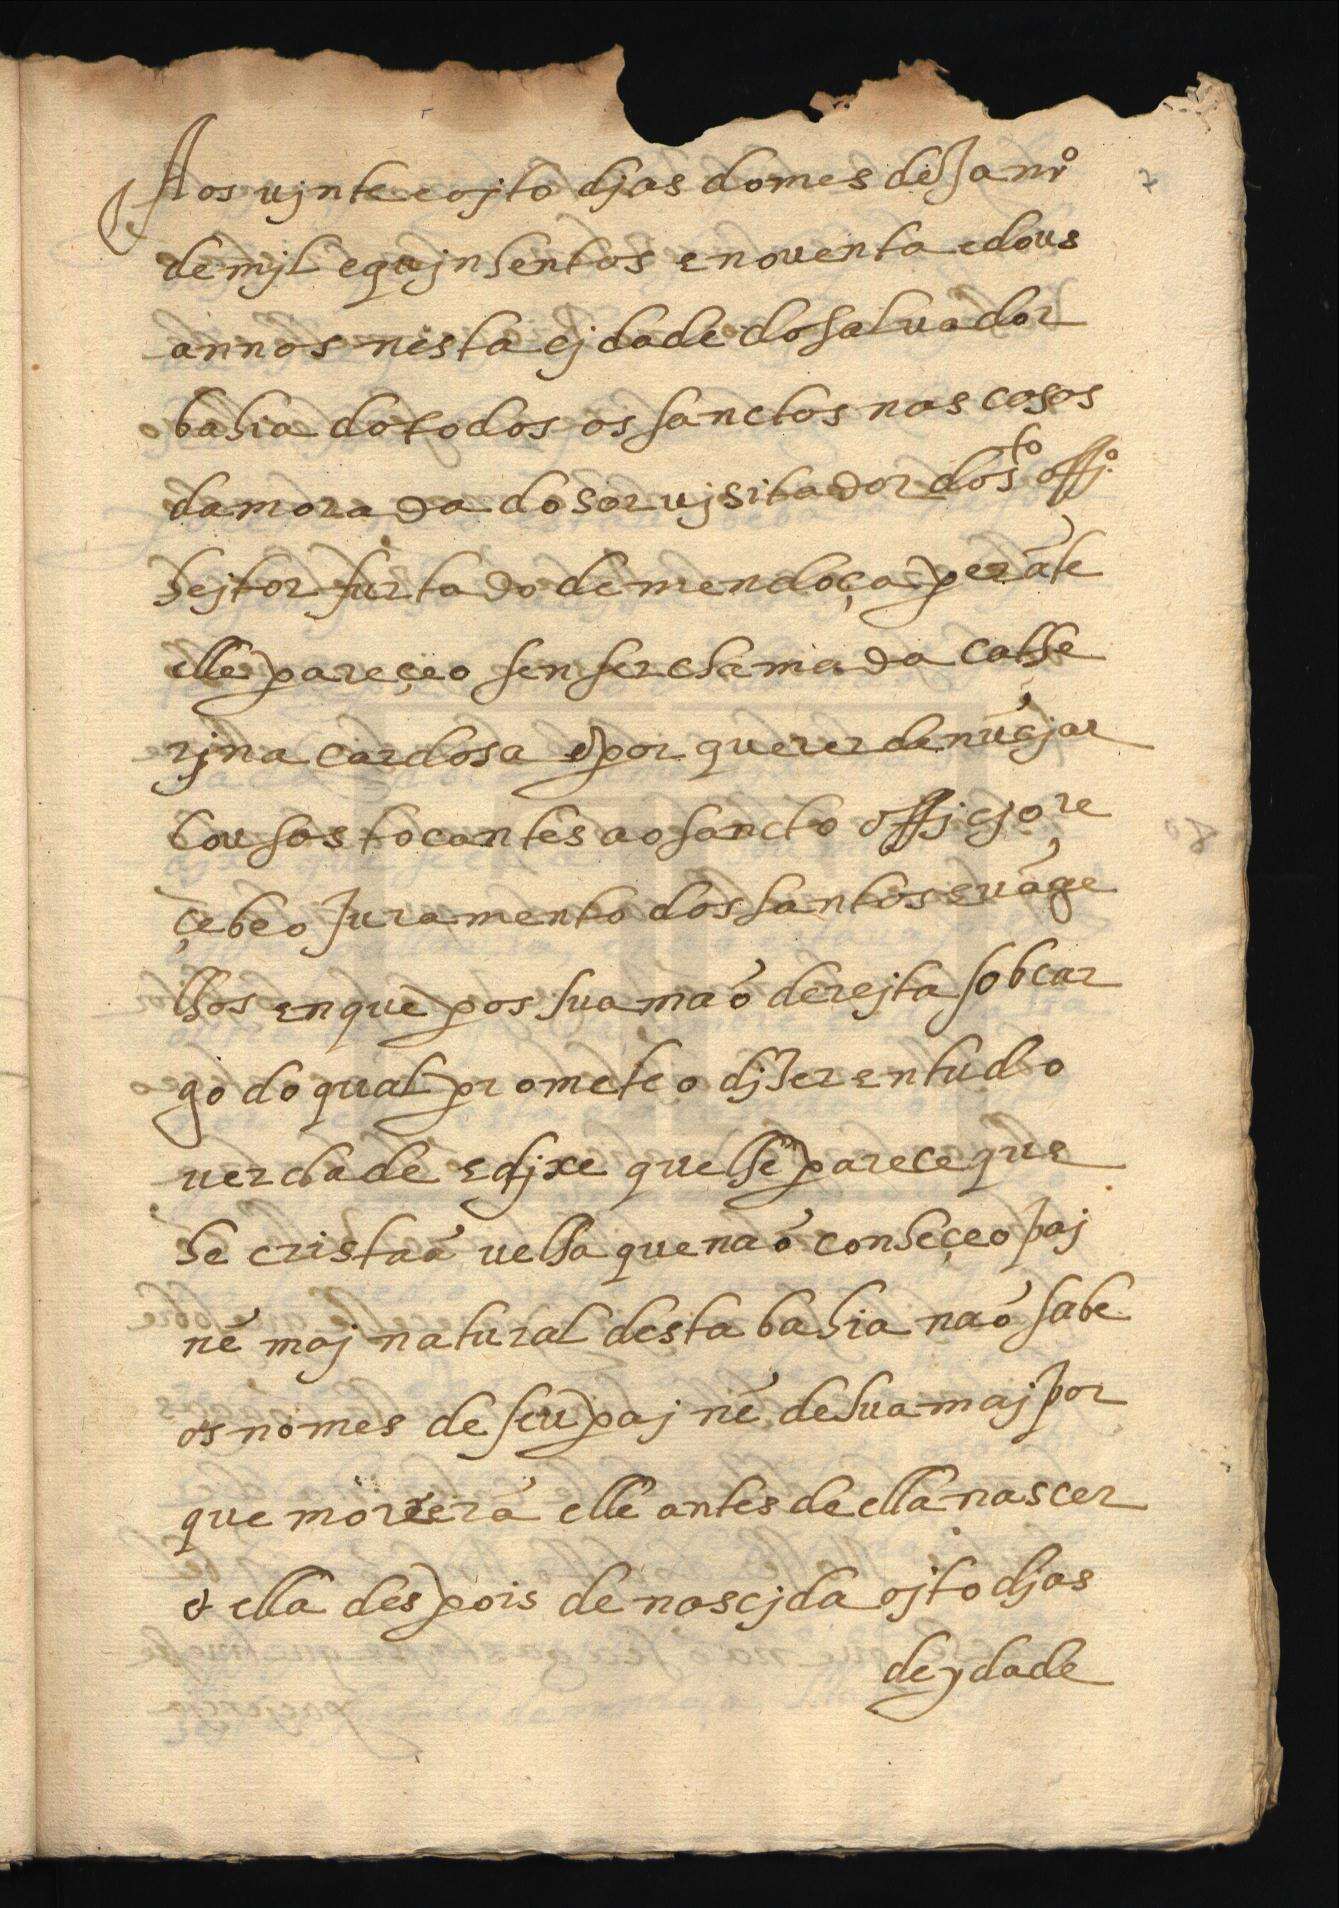 Aos vjnte e ojto djas do mes de Janrº
de mjl e qujnhentos e noventa e dous
annos nesta çjdade do salvador
bahia do todos os sanctos nas casas
da morada do sor vjsitador do sto offjº
hejtor furtado de mendoça perãte
elle pareçeo sen ser chamada cathe
rjna cardosa e por querer denũçjar
cousas tocantes ao sancto offjçjo re
çebeo Juramento dos santos evãge
lhos en que pos sua mão derejta sob car
go do qual prometeo djzer en tudo
verdade e djxe que lhe parece que
he cristaã velha que não conheçeo paj
nẽ maj natural desta bahia não sabe
os nomes de seu paj nẽ de sua maj por
que morrerã elle antes de ella nascer
& ella despois de nascjda ojto djas
de ydade
7